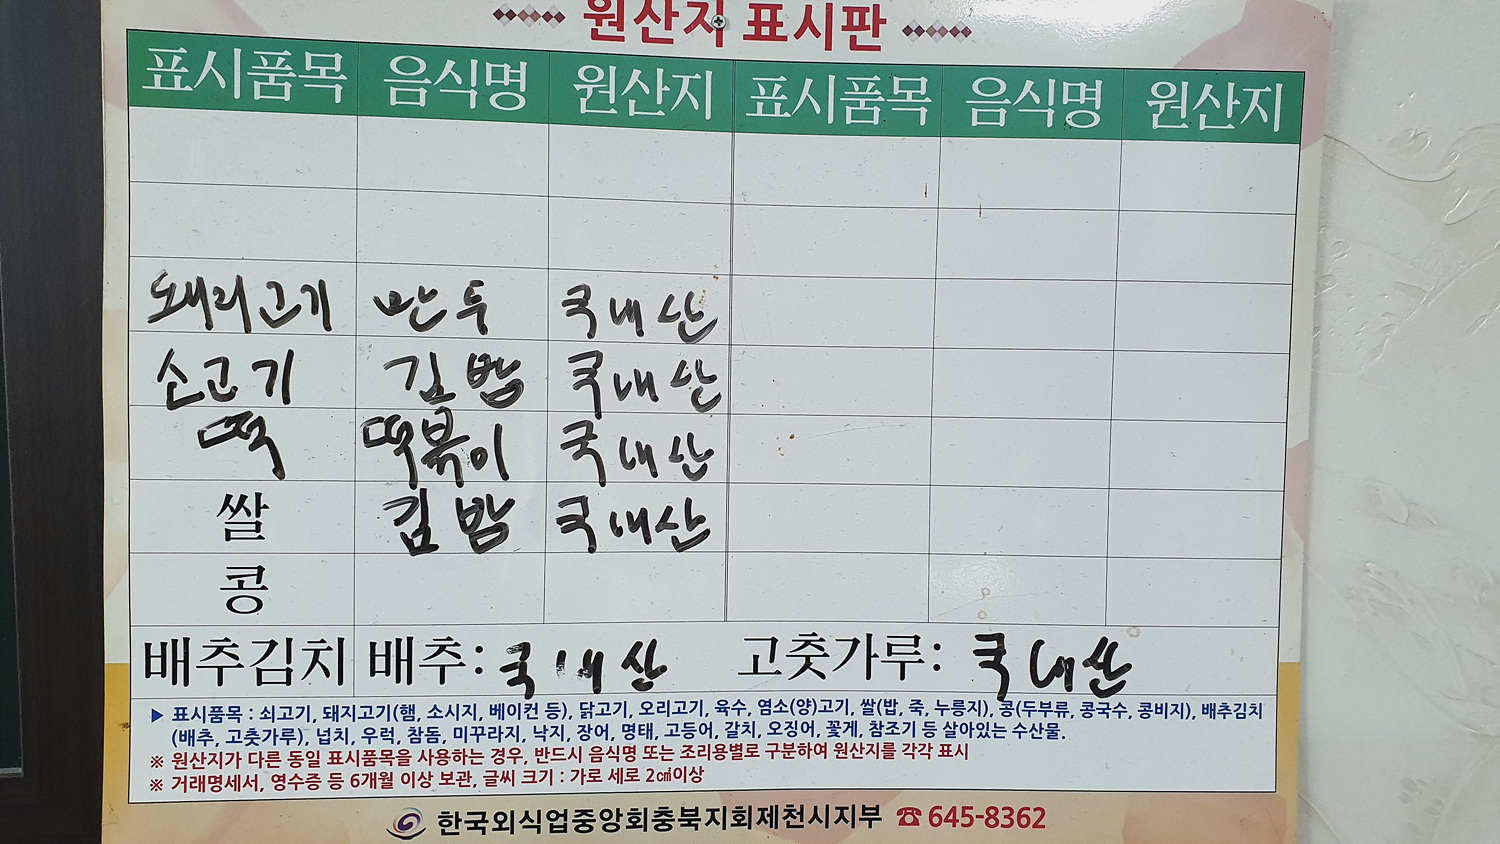 원산지 표시판
표시품목 음식명 원산지 표시품목 음식명 원산지
돼지고기 만두 국내산
소고기 김밥 국내산
떡 떡볶이 국내산
쌀 김밥 국내산
콩
배추김치 배추: 국내산 고춧가루: 국내산
▶ 표시품목 : 쇠고기, 돼지고기(햄, 소시지, 베이컨 등), 닭고기, 오리고기, 육수, 염소(양)고기, 쌀(밥, 죽, 누룽지), 콩(두부류, 콩국수, 콩비지), 배추김치
(배추, 고춧가루), 넙치, 우럭, 참돔, 미꾸라지, 낙지, 장어, 명태, 고등어, 갈치, 오징어, 꽃게, 참조기 등 살아있는 수산물.
※ 원산지가 다른 동일 표시품목을 사용하는 경우, 반드시 음식명 또는 조리용별로 구분하여 원산지를 각각 표시
※ 거래명세서, 영수증 등 6개월 이상 보관, 글씨 크기 : 가로 세로 2㎠이상
한국외식업중앙회충북지회제천시지부 ☎645-8362